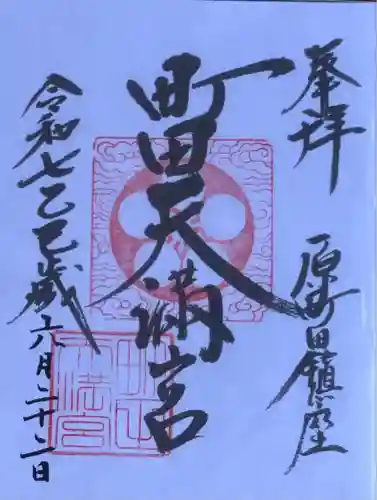 奉拝
原町田鎮座
町田天満宮
令和七乙巳歳六月二十二日